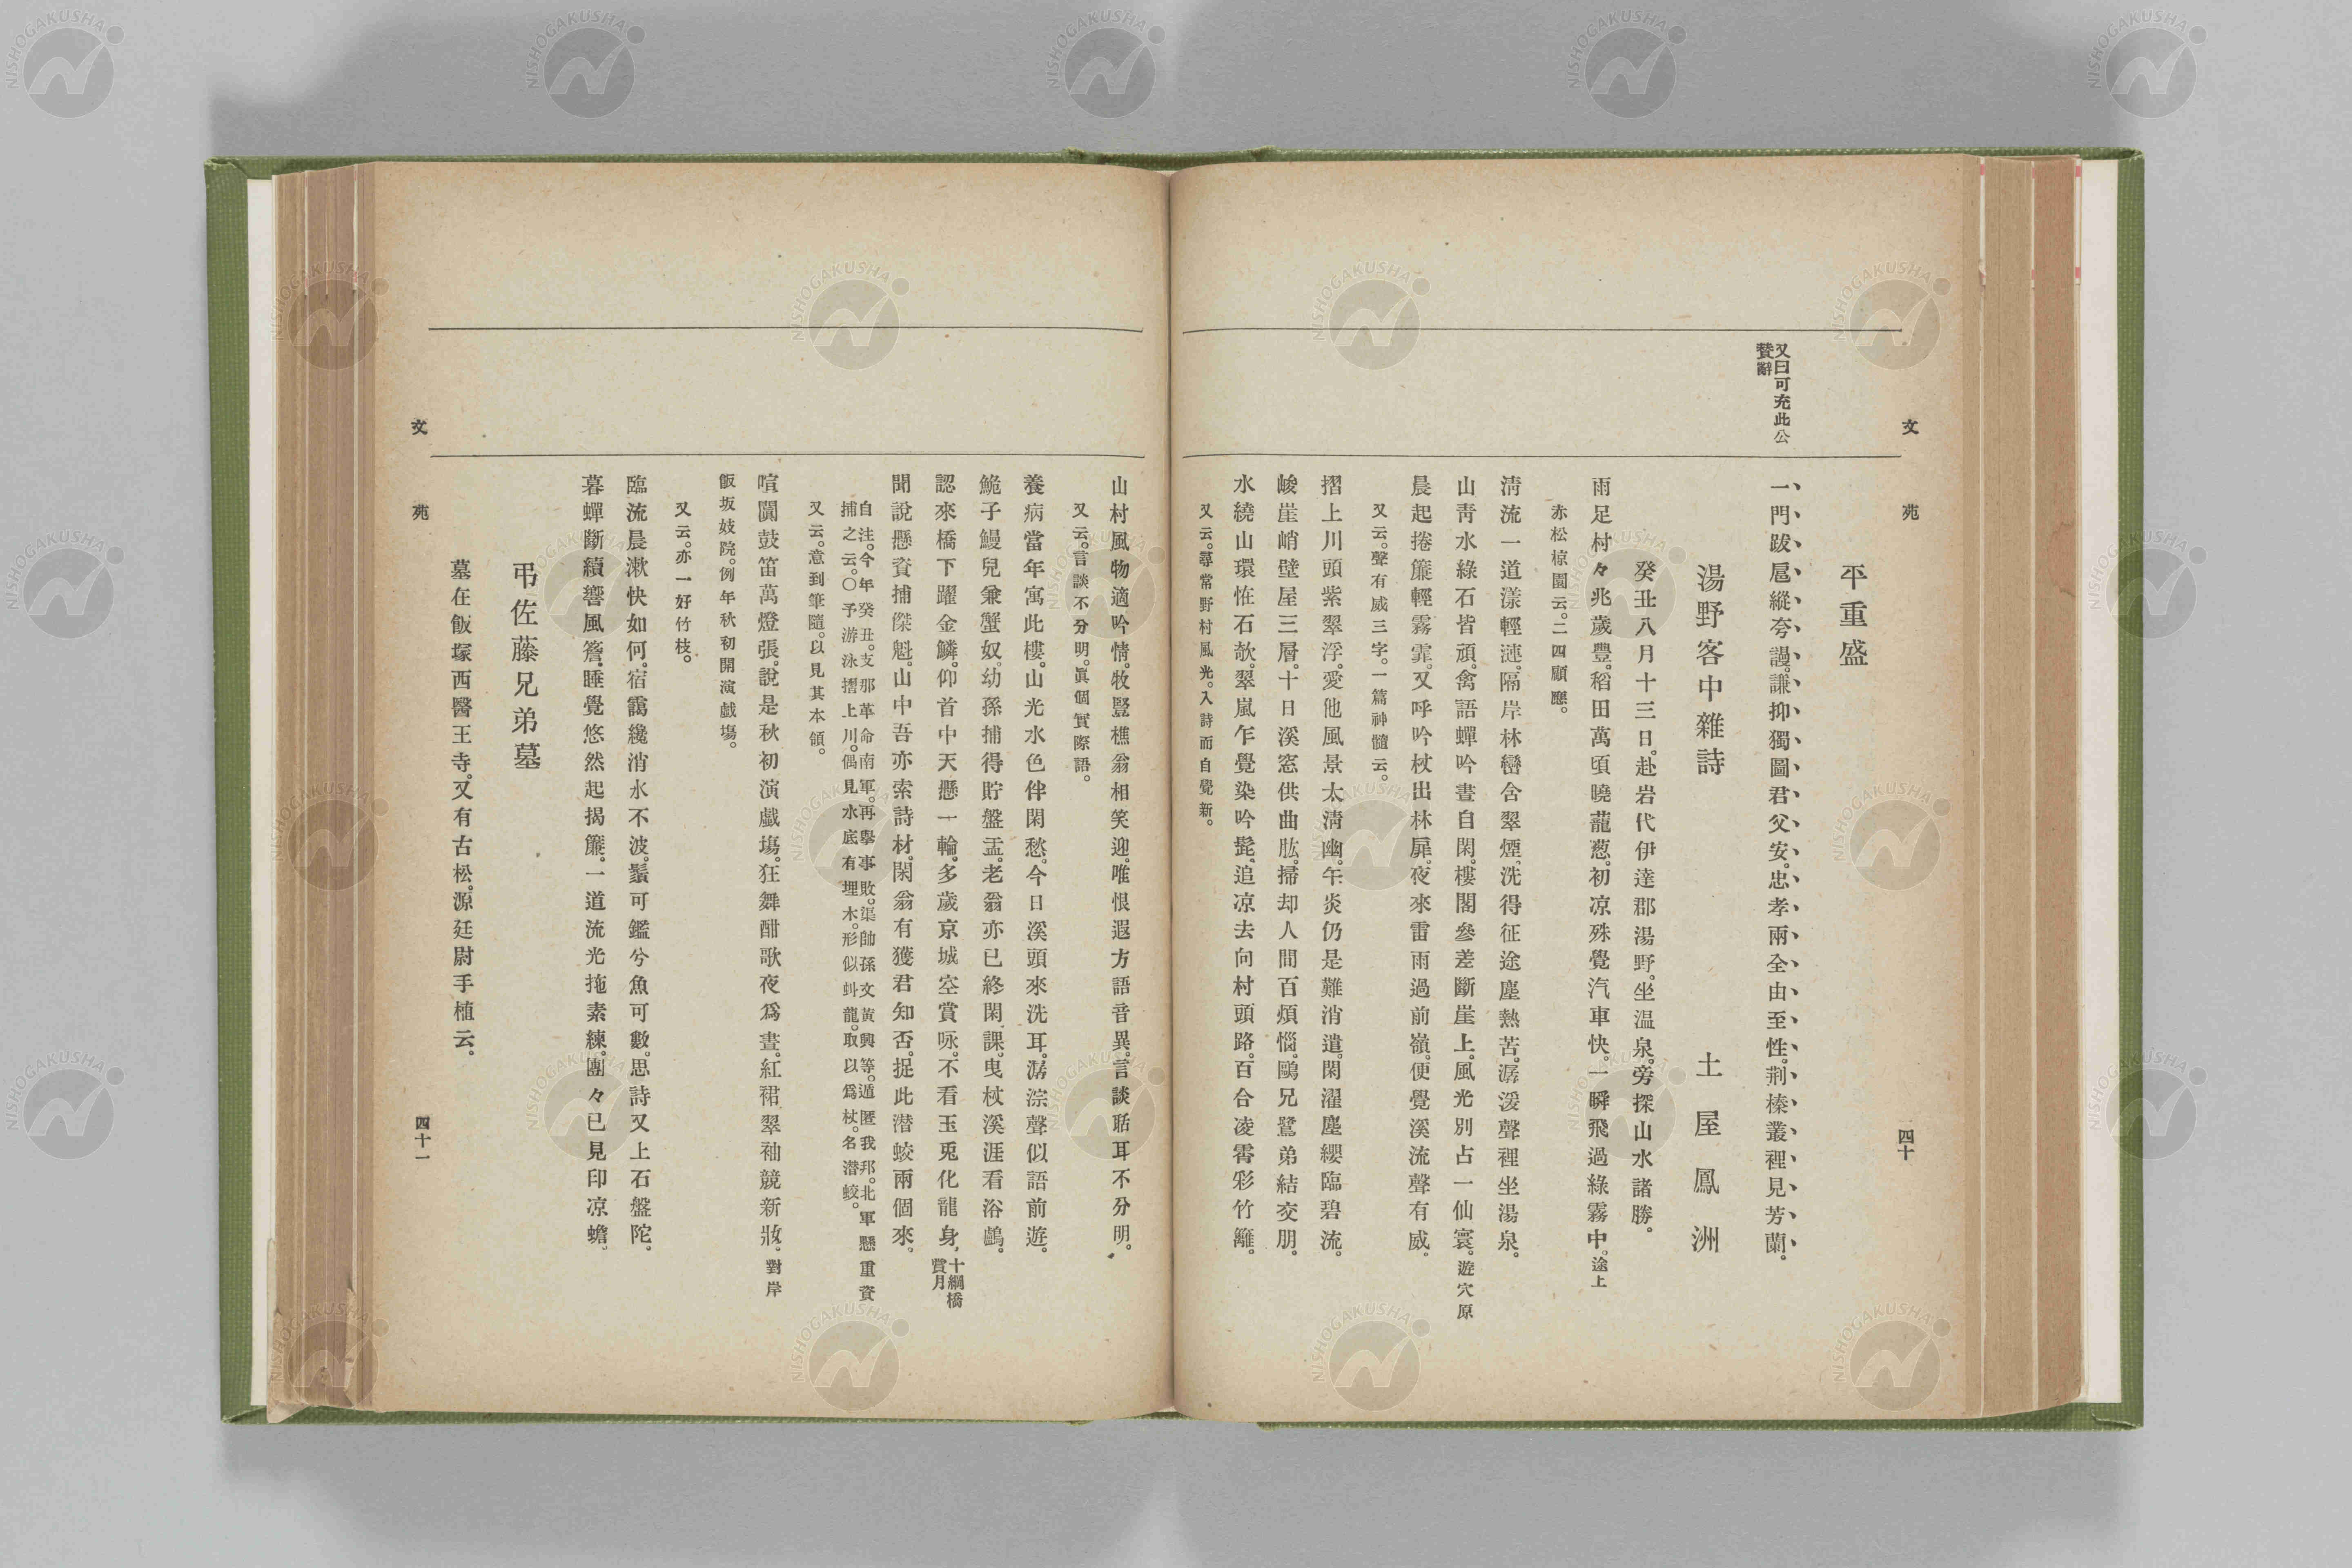 文苑
四十
又曰可充此公
贊辭
平重盛
一門跋扈縱夸謾。謙抑獨圖君父安。忠孝兩全由至性。荆榛叢裡見芳蘭。
湯野客中雜詩
土屋鳳洲
癸丑八月十三日。赴岩代伊達郡湯野。坐温泉。旁探山水諸勝。
雨足村々兆歲豐。稻田萬頃曉蘢葱。初凉殊覺汽車快。一瞬飛過綠霧中。途上
赤松椋園云。二四願應。
淸流一道漾輕漣。隔岸林巒含翠煙。洗得征途塵熱苦。潺湲聲裡坐湯泉。
山靑水綠石皆頑。禽語蟬吟晝自閑。樓閣參差斷崖上。風光別占一仙寰。遊穴原
晨起捲簾輕霧霏。又呼吟杖出林扉。夜來雷雨過前嶺。便覺溪流聲有威。
又云。聲有威三字。一篇神髓云。
摺上川頭紫翠浮。愛他風景太淸幽。午炎仍是難消遣。閑濯塵纓臨碧流。
峻崖峭壁屋三層。十日溪窓供曲肱。掃却人間百煩惱。鷗兄鷺弟結交朋。
水繞山環恠石欹。翠嵐乍覺染吟髭。追凉去向村頭路。百合凌霄彩竹籬。
又云。尋常野村風光。入詩而自覺新。
山村風物適吟情。牧豎樵翁相笑迎。唯恨遐方語音異。言談聒耳不分明。
又云。言談不分明。眞個實際語。
養病當年寓此樓。山光水色伴閑愁。今日溪頭來洗耳。潺淙聲似語前遊。
鮠子鰻兒兼蟹奴。幼孫捕得貯盤盂。老翁亦已終閑課。曳杖溪涯看浴鷀。
認來橋下躍金鱗。仰首中天懸一輪。多歲京城空賞咏。不看玉兎化龍身。十綱橋
賞月
聞說懸賚捕傑魁。山中吾亦索詩材。閑翁有獲君知否。捉此潜蛟兩個來。
自注。今年癸丑。支那革命南軍。再擧事敗。渠帥孫文黃興等。遁匿我邦。北軍懸重賚
捕之云。〇予游泳摺上川。偶見水底有埋木。形似虯龍。取以爲杖。名潜蛟。
又云。意到筆隨。以見其本領。
喧闐鼓笛萬燈張。說是秋初演戲塲。狂舞酣歌夜爲晝。紅裙翠袖競新妝。對岸
飯坂妓院。例年秋初開演戲塲。
又云。亦一好竹枝。
臨流晨漱快如何。宿靄纔消水不波。鬚可鑑兮魚可數。思詩又上石盤陀。
暮蟬斷續響風簷。睡覺悠然起揭簾。一道流光拖素練。團々已見印凉蟾。
弔佐藤兄弟墓
墓在飯塚西醫王寺。又有古松。源廷尉手植云。
文苑
四十一